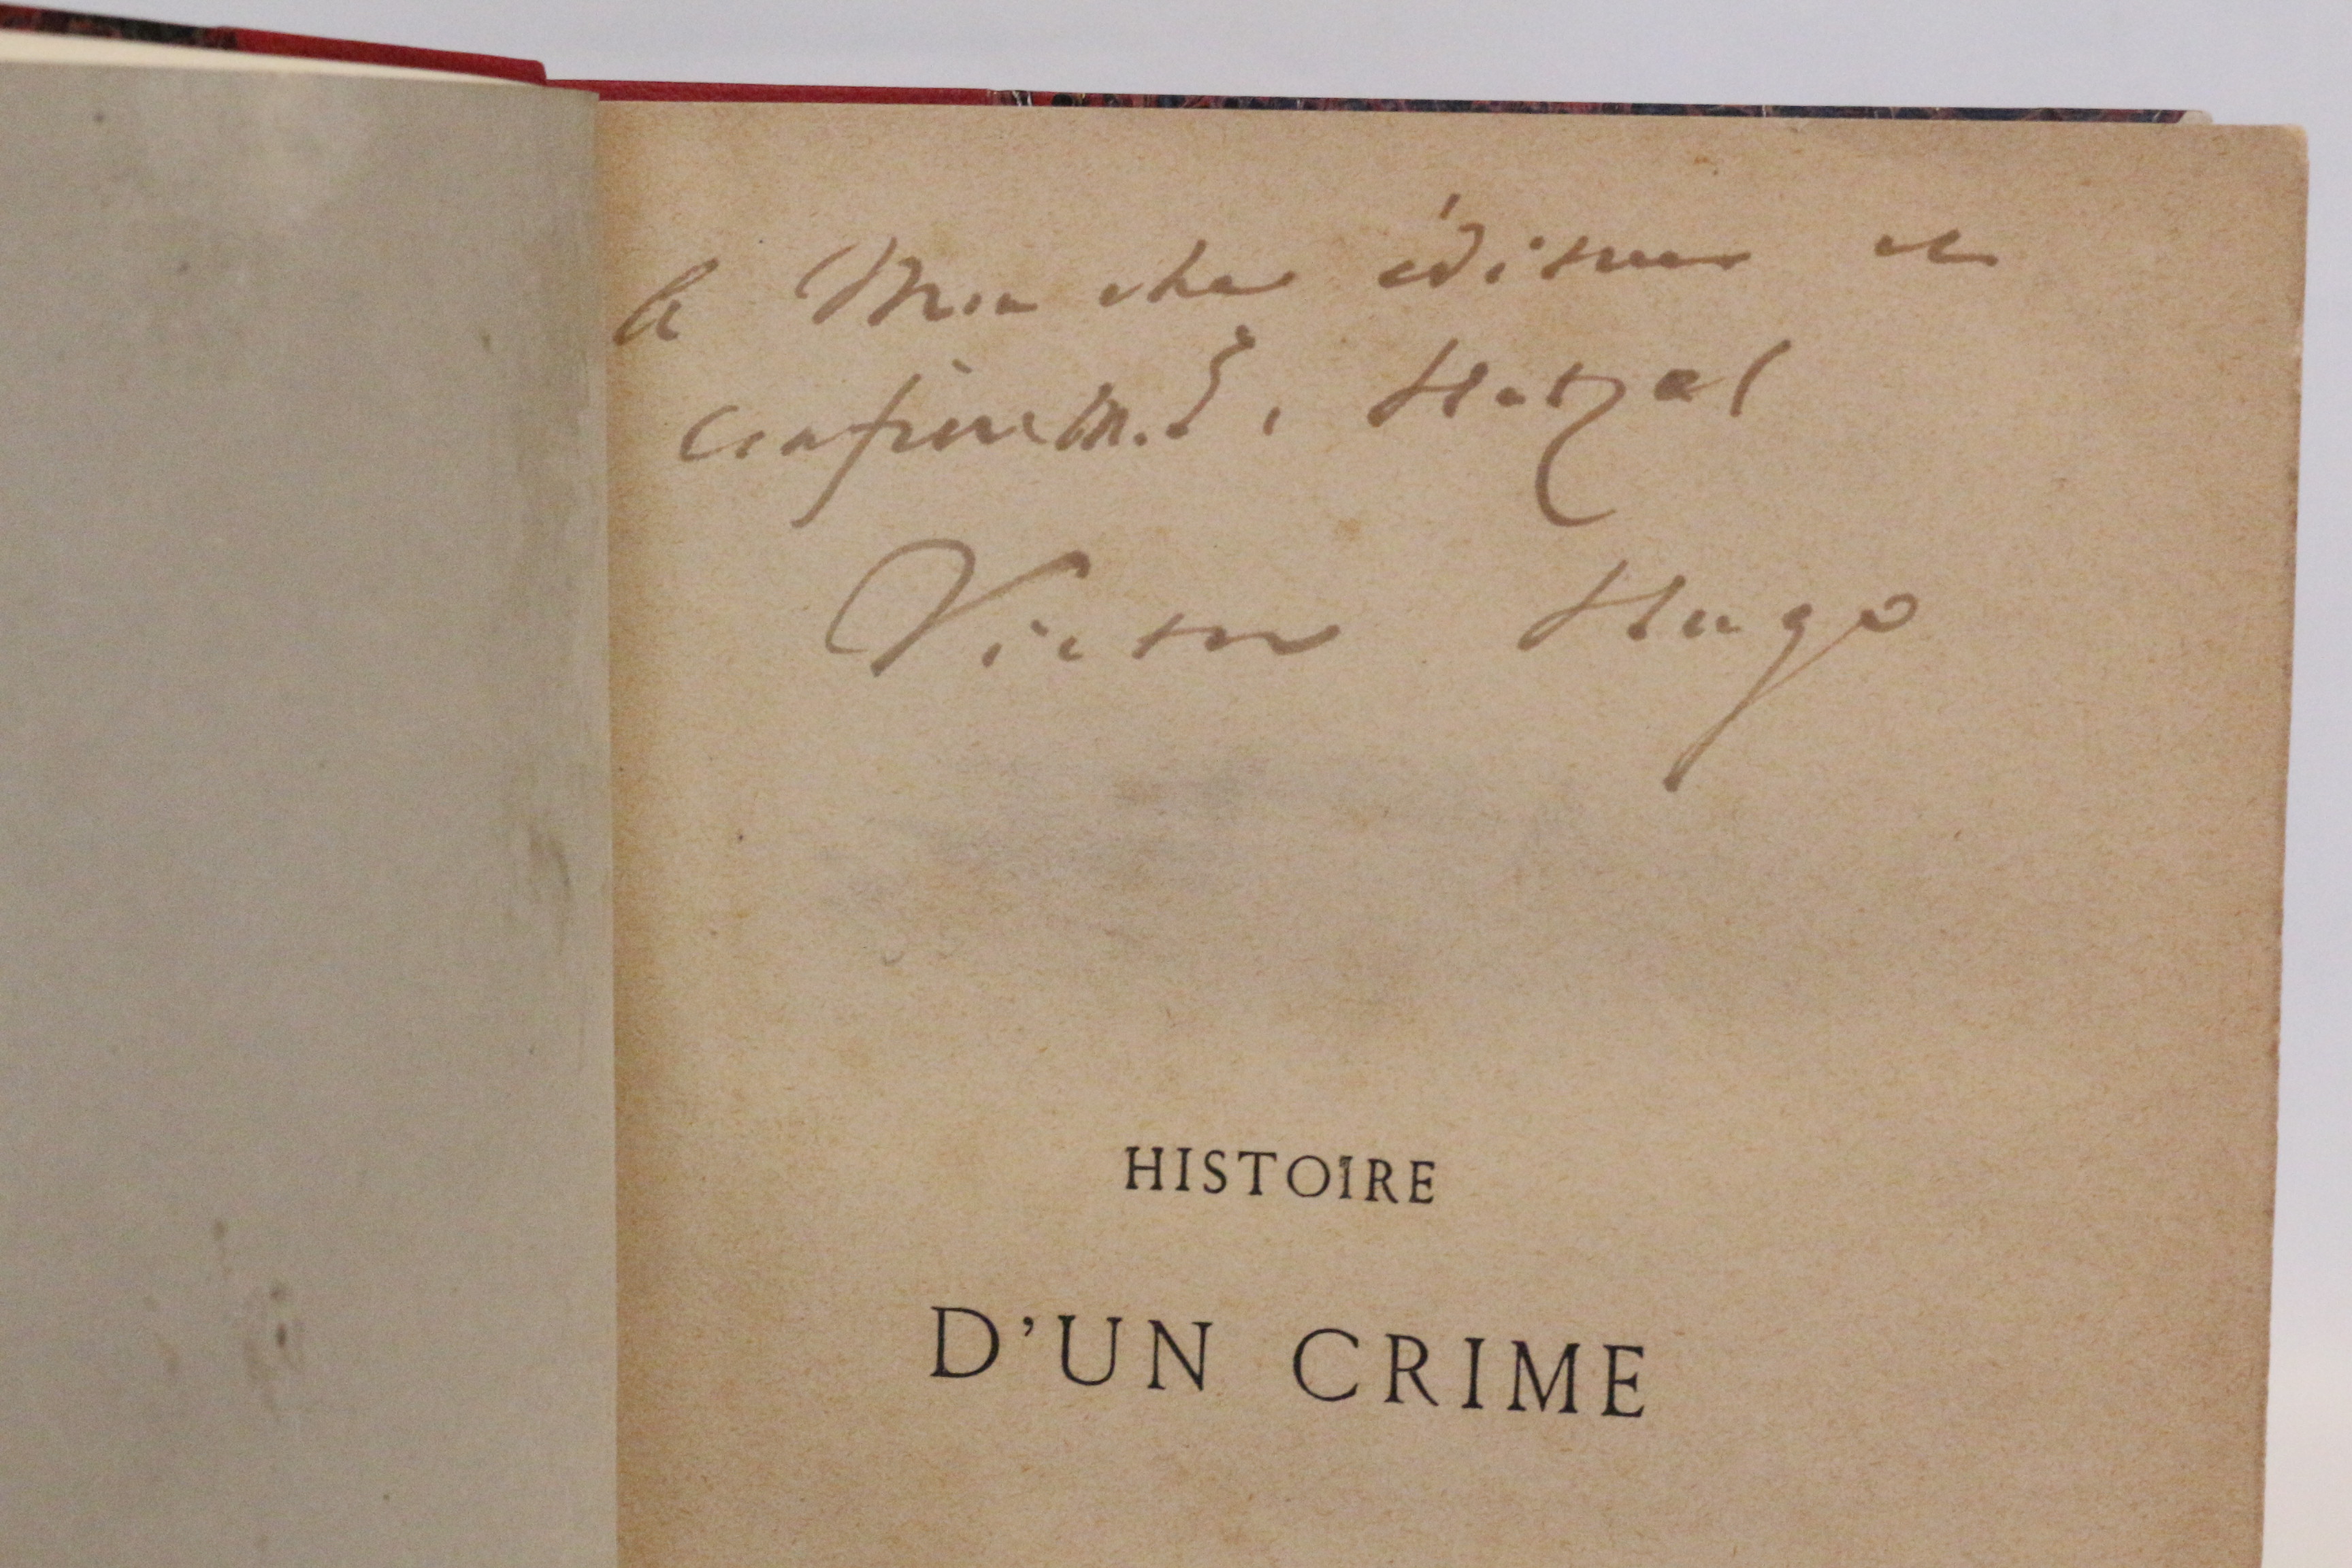 à Mon cher éditeur et
confrère M. J. Hetzel
Victor Hugo
HISTOIRE
D'UN CRIME